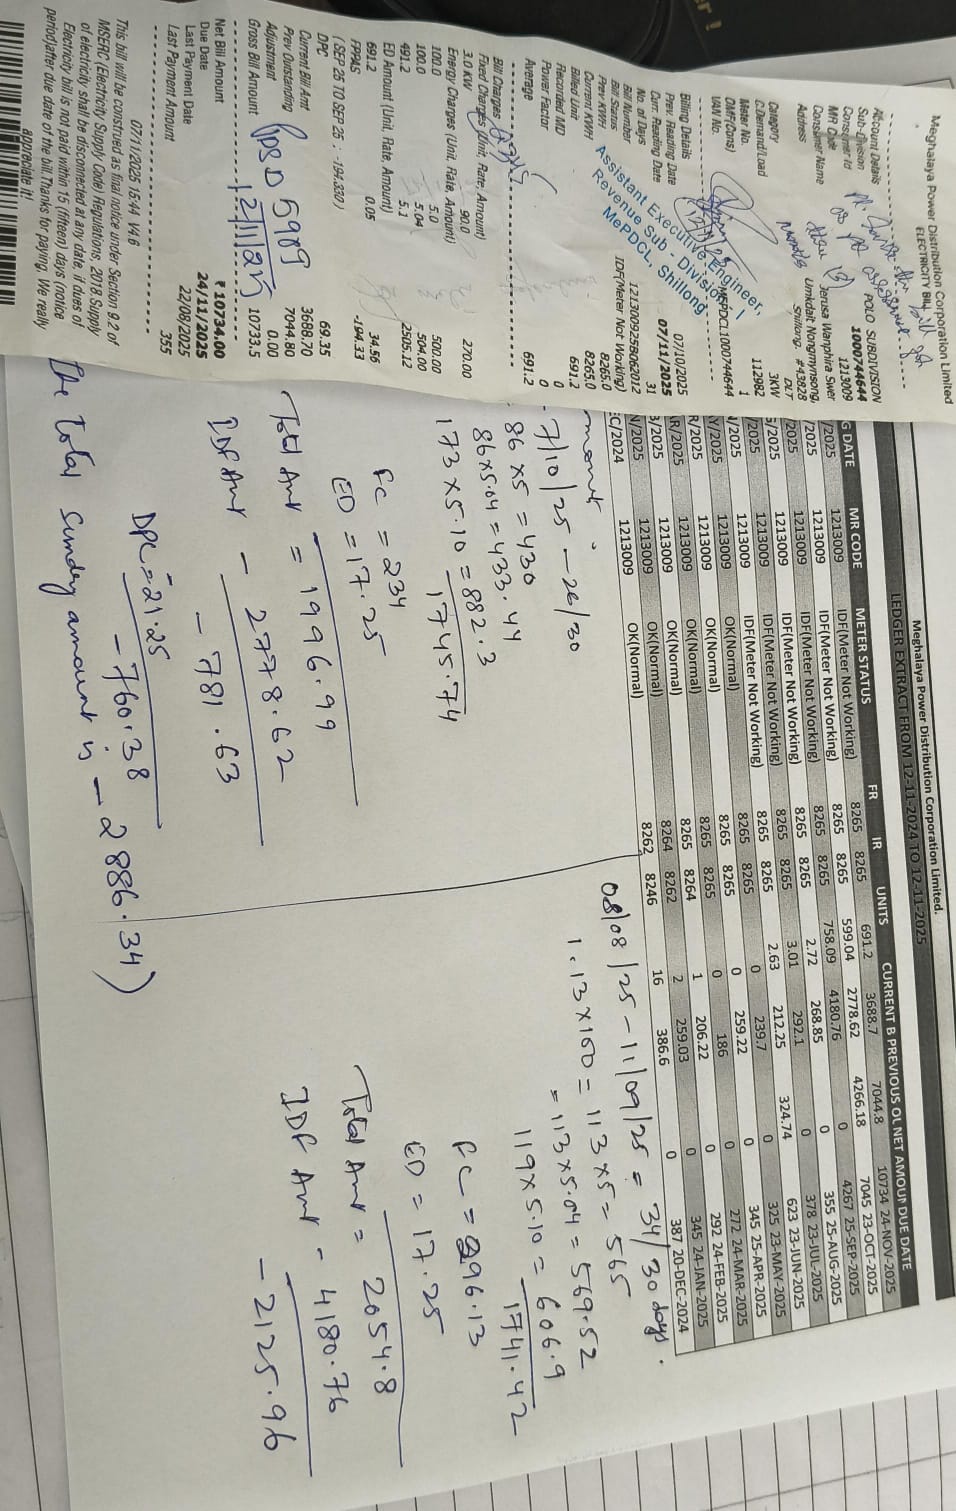 Meghalaya Power Distribution Corporation Limited
ELECTRICITY Bill
Account Details
Sub-Division POLO SUBDIVISION
Consumer Id 1000744644
MR Code 1213009
Consumer Name Jerusa Wanphira Swer
Address Umkdait Nongmynsong,
Shillong. #43828
Category DLT
C/Demand/Load 3KW
Meter No. 112982
OMF(Cons) 1
VAN No. MEPDCL1000744644
Billing Details
Prev. Reading Date 07/10/2025
Curr. Reading Date 07/11/2025
No. of Days 31
Bill Number 1213009255B062012
Bill Status IDF(Meter Not Working)
Prev KWH 8265.0
Current KWH 8265.0
Billed Unit 691.2
Recorded MD 0
Power Factor 0
Average 691.2
Bill Charges
Fixed Charges (Unit, Rate, Amount)
3.0 KW 90.0 270.00
Energy Charges (Unit, Rate, Amount)
100.0 5.0 500.00
100.0 5.04 504.00
491.2 5.1 2505.12
ED Amount (Unit, Rate, Amount)
691.2 0.05 34.56
FPPAS -194.33
( SEP 25 TO SEP 25 : -194.330 )
DPC 69.35
Current Bill Amt 3688.70
Prev Outstanding 7044.80
Adjustment 0.00
Gross Bill Amount 10733.5
Net Bill Amount ₹ 10734.00
Due Date 24/11/2025
Last Payment Date 22/08/2025
Last Payment Amount 355
07/11/2025 15:44 V4.6
This bill will be construed as final notice under Section 9.2 of
MSERC (Electricity Supply Code) Regulations, 2018 Supply
of electricity shall be disconnected at any date, if dues of
Electricity bill is not paid within 15 (fifteen) days (notice
period)after due date of the bill. Thanks for paying. We really
appreciate it!
Assistant Executive Engineer,
Revenue Sub - Division - I
MePDCL, Shillong
PPS D 5989
12/11/25
Meghalaya Power Distribution Corporation Limited.
LEDGER EXTRACT FROM 12-11-2024 TO 12-11-2025
G DATE MR CODE METER STATUS FR IR UNITS CURRENT B PREVIOUS OU NET AMOUN DUE DATE
/2025 1213009 IDF(Meter Not Working) 8265 8265 691.2 3688.7 7044.8 10734 24-NOV-2025
/2025 1213009 IDF(Meter Not Working) 8265 8265 599.04 2778.62 4266.18 7045 23-OCT-2025
/2025 1213009 IDF(Meter Not Working) 8265 8265 758.09 4180.76 0 4267 25-SEP-2025
/2025 1213009 IDF(Meter Not Working) 8265 8265 2.72 268.85 0 355 25-AUG-2025
/2025 1213009 IDF(Meter Not Working) 8265 8265 3.01 292.1 0 378 23-JUL-2025
/2025 1213009 IDF(Meter Not Working) 8265 8265 2.63 212.25 324.74 623 23-JUN-2025
/2025 1213009 IDF(Meter Not Working) 8265 8265 0 239.7 0 325 23-MAY-2025
/2025 1213009 OK(Normal) 8265 8265 0 259.22 0 345 25-APR-2025
/2025 1213009 OK(Normal) 8265 8265 0 186 0 272 24-MAR-2025
R/2025 1213009 OK(Normal) 8265 8264 1 206.22 0 292 24-FEB-2025
/2025 1213009 OK(Normal) 8264 8262 2 259.03 0 345 24-JAN-2025
C/2024 1213009 OK(Normal) 8262 8246 16 386.6 0 387 20-DEC-2024
08/08/25 - 11/09/25 = 34/30 days.
1.13 x 100 = 113 x 5 = 565
= 113 x 5.04 = 569.52
119 x 5.10 = 606.9
1741.42
FC = 296.13
ED = 17.25
Total Amt = 2054.8
IDF Amt - 4180.76
- 2125.96
7/10/25 - 26/30
86 x 5 = 430
86 x 5.04 = 433.44
173 x 5.10 = 882.3
1745.74
FC = 234
ED = 17.25
Total Amt = 1996.99
IDF Amt - 2778.62
- 781.63
DPC = 21.25
- 760.38
The Total Sundry amount is - 2886.34)